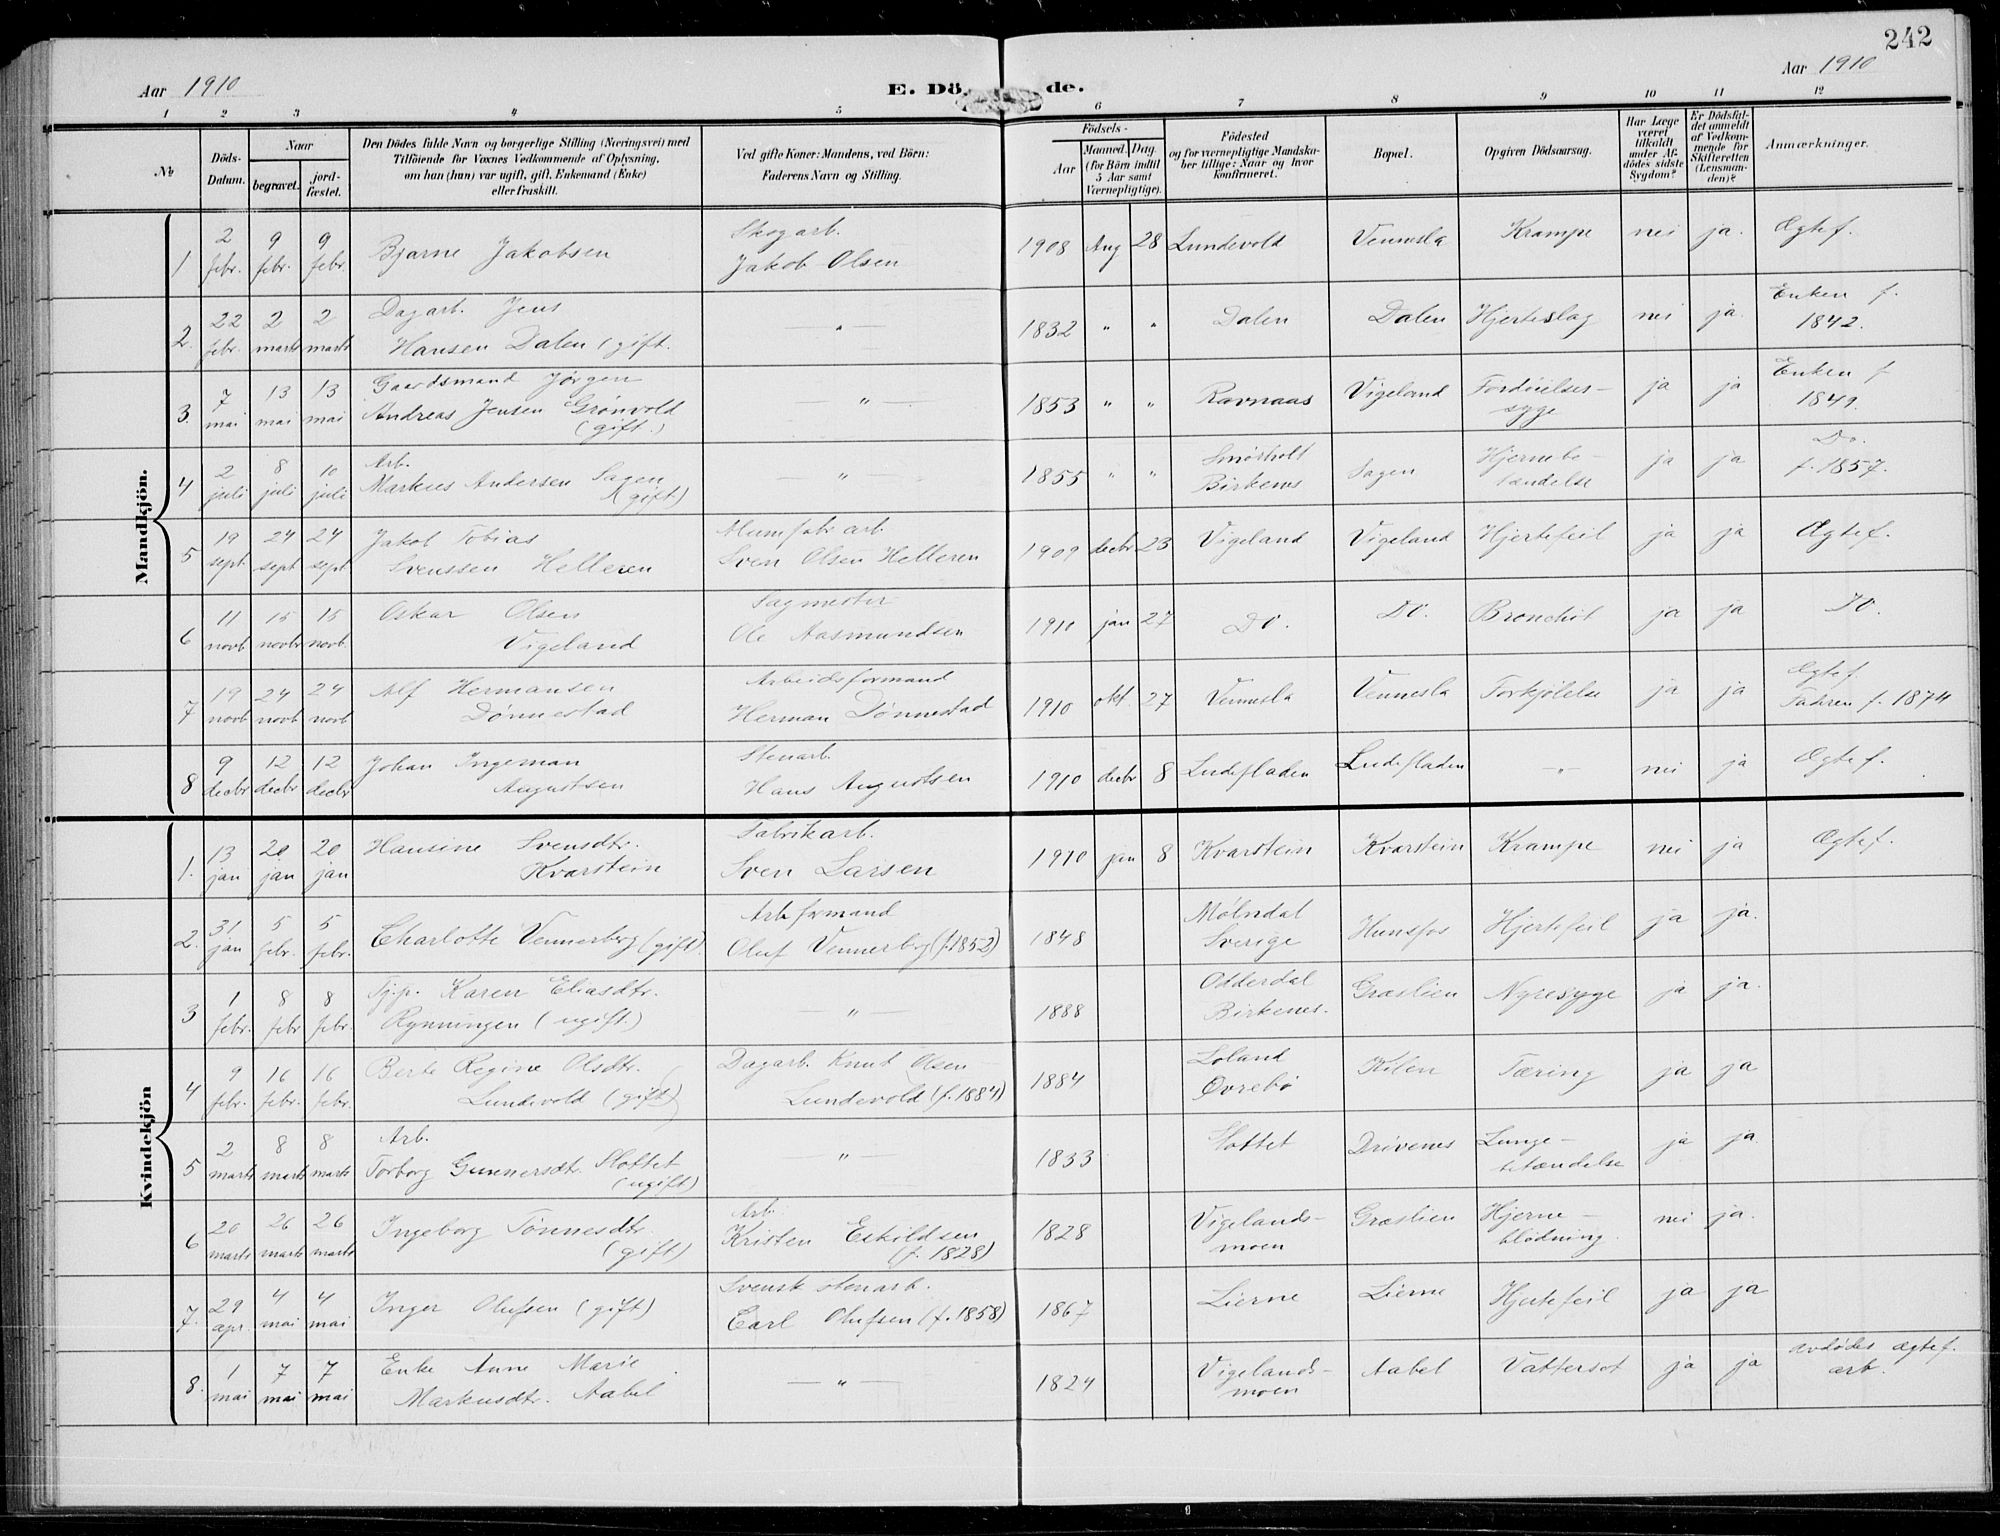 242
Aar 1910
E. Dö de.
Aar 1910
1 2 3 4 5 6 7 8 9 10 11 12
No
Döds-Datum.
Naar
begravet.
jord-fæstet.
Den Dödes fulde Navn og borgerlige Stilling (Næringsvei) med
Tilföiende for Voxnes Vedkommende af Oplysning,
om han (hun) var ugift, gift, Enkemand (Enke)
eller fraskilt.
Ved gifte Koner: Mandens, ved Börn:
Faderens Navn og Stilling.
Födsels-
Aar
Maaned. Dag.
(for Börn indtil
5 Aar samt
Værnepligtige).
Födested
og for værnepligtige Mandska-
ber tillige: Naar og hvor
konfirmeret.
Bopæl.
Opgiven Dödsaarsag.
Har Læge
været
tilkaldt
under Af-
dödes sidste
Sygdom?
Er Dödsfal-
det anmeldt
af Vedkom-
mende for
Skifteretten
(Lensman-
den)?
Anmærkninger.
Mandkjön.
1 2 febr. 9 febr. 9 febr. Bjarne Jakobsen Skogarb. Jakob Olsen 1908 Aug 28 Lundevold Vennesla Krampe nei ja. Ægtef.
2. 22 febr. 2 marts 2 marts Dagarb. Jens Hansen Dalen (gift. — " — 1832 " " Dalen Dalen Hjerteslag nei ja. Enken f. 1842.
3. 7 mai 13 mai 13 mai Gaardsmand Jørgen Andreas Jensen Grønvold (gift.) — " — 1853 " " Ravnaas Vigeland Fordøielses-syge ja ja Enken f 1849.
4 2 juli 8 juli 10 juli Arb. Markus Andersen Sagen (gift) — " — 1855 " " Smørholt Birkenes Sagen Hjernebe-tændelse ja ja Do. f. 1857.
5 19 sept 24 sept 24 sept Jakob Tobias Svenssen Helleren Alumfabr arb. Sven Olsen Helleren 1909 decbr 23 Vigeland Vigeland Hjertefeil ja ja Ægtef.
6 11 novb 15 novbr 15 novb. Oskar Olsen Vigeland Sagmester Ole Aasmundsen 1910 jan 27 Do. Do. Bronchit ja ja Do.
7 19 novb 24 novb 24 novb Alf Hermansen Dønnestad Arbeidsformand Herman Dønnestad 1910 okt. 27 Vennesla Vennesla Forkjølelse ja ja Ægtef. Fadren f. 1874
8 9 decbr 12 decbr 12 decbr Johan Ingeman Augustsen Stenarb. Hans Augustsen 1910 decbr 8 Ludefladen Ludefladen — " — nei ja Ægtef.
Kvindekjön
1. 13 jan 20 jan 20 jan Hansine Svensdtr. Kvarstein Fabrikarb. Sven Larsen 1910 jan 8 Kvarstein Kvarstein Krampe nei ja Ægtef.
2. 31. jan 5 febr. 5 febr. Charlotte Vennerberg (gift). Arb formand Oluf Vennerberg (f. 1852) 1848 Mølndal Sverige Hunsfos Hjertefeil ja ja.
3 1 febr. 8 febr 8 febr. Tj.p. Karen Eliasdtr. Rynningen (ugift.) — " — 1888 Odderdal Birkenes. Græslien Nyresyge ja ja.
4 9 febr. 16 febr. 16 febr. Berte Regine Olsdtr. Lundevold (gift) Dagarb. Knut Olsen Lundevold (f. 1884) 1884 Loland Øvrebø Kilen Tæring ja ja
5 2 marts 8 marts 8 marts Arb. Torborg Gunnersdtr. Slottet (ugift) — " — 1833 Slottet Drivenes Lunge-betændelse ja ja
6 20 marts 26 marts 26 marts Ingeborg Tønnesdtr. (gift) Arb. Kristen Eskildsen (f. 1828) 1828 Vigelands-moen Græslien Hjerne-blødning. nei ja.
7. 29 apr. 4 mai 4 mai Inger Olufsen (gift) Svensk stenarb. Carl Olufsen (f. 1858) 1867 Lierne Lierne Hjertefeil ja ja
8. 1 mai 7 mai 7 mai Enke Anne Marie Markusdtr. Aabel — " — 1824 Vigelands-moen Aabel Vattersot ja ja avdødes ægtef. arb.